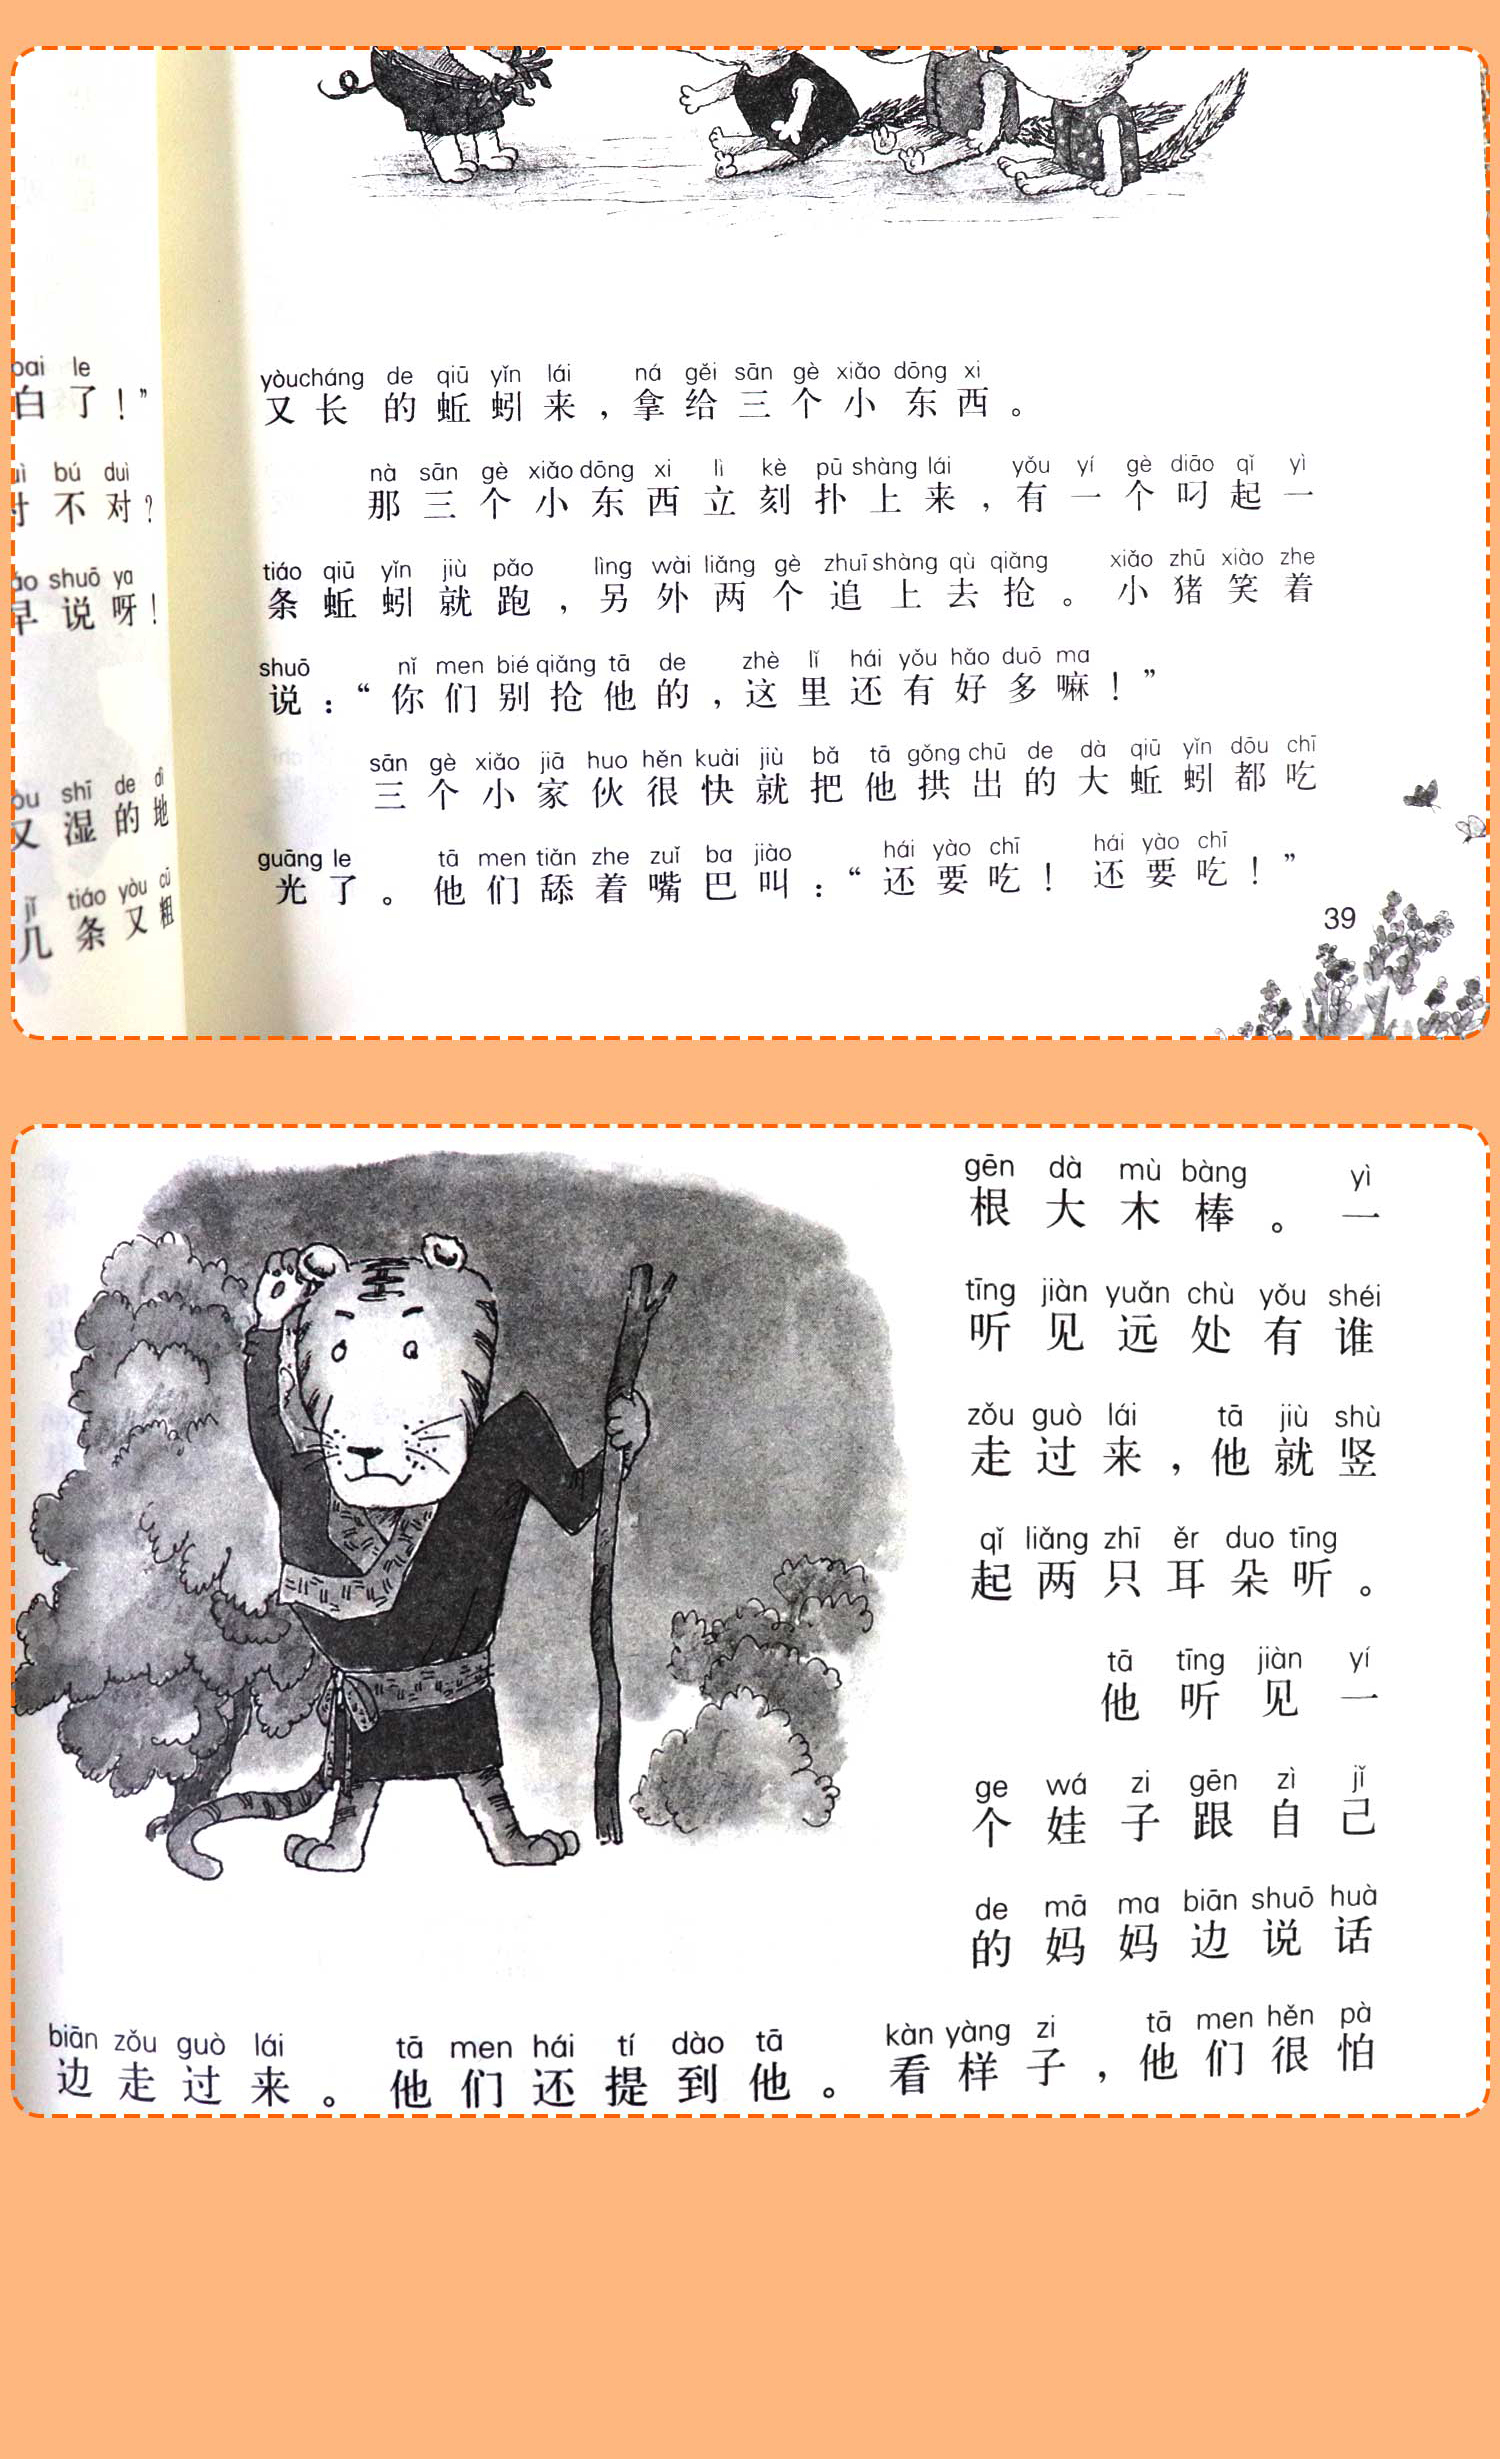 bai le
白了！”
bú duì
不对？
shuō ya
早说呀！
shī de dì
又湿的地
jǐ tiáo yòu cū
几条又粗
yòu cháng de qiū yǐn lái ná gěi sān gè xiǎo dōng xi
又长的蚯蚓来，拿给三个小东西。
nà sān gè xiǎo dōng xi lì kè pū shàng lái yǒu yí gè diāo qǐ yì
那三个小东西立刻扑上来，有一个叼起一
tiáo qiū yǐn jiù pǎo lìng wài liǎng gè zhuī shàng qù qiǎng xiǎo zhū xiào zhe
条蚯蚓就跑，另外两个追上去抢。小猪笑着
shuō nǐ men bié qiǎng tā de zhè lǐ hái yǒu hǎo duō ma
说：“你们别抢他的，这里还有好多嘛！”
sān gè xiǎo jiā huo hěn kuài jiù bǎ tā gǒng chū de dà qiū yǐn dōu chī
三个小家伙很快就把他拱出的大蚯蚓都吃
guāng le tā men tiǎn zhe zuǐ ba jiào hái yào chī hái yào chī
光了。他们舔着嘴巴叫：“还要吃！还要吃！”
39
gēn dà mù bàng yì
根大木棒。一
tīng jiàn yuǎn chù yǒu shéi
听见远处有谁
zǒu guò lái tā jiù shù
走过来，他就竖
qǐ liǎng zhī ěr duo tīng
起两只耳朵听。
tā tīng jiàn yí
他听见一
ge wá zi gēn zì jǐ
个娃子跟自己
de mā ma biān shuō huà
的妈妈边说话
biān zǒu guò lái tā men hái tí dào tā kàn yàng zi tā men hěn pà
边走过来。他们还提到他。看样子，他们很怕